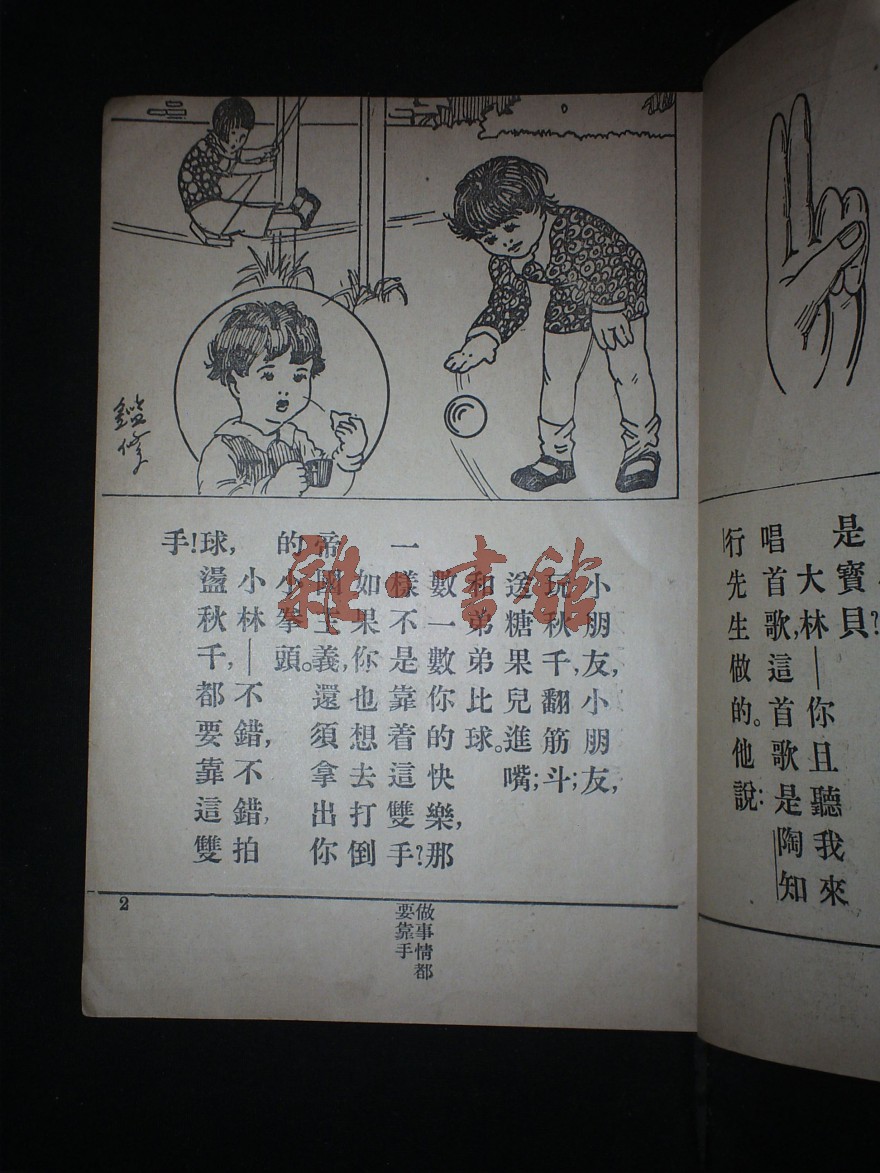 是寶貝?
大林—你且聽我來
唱首歌,這首歌是陶知
行先生做的。他說:
鑑修
小朋友,小朋友,
玩秋千,翻筋斗;
送糖果兒進嘴;
和弟弟比球。
數一數你的快樂,那
一樣不是靠着這雙手?
如果你也想去打倒
帝國主義,還須拿出你
的小拳頭。
小林—不錯,不錯,拍
球,盪秋千,都要靠這雙
手!
做事情都
要靠手
2
雜·書館